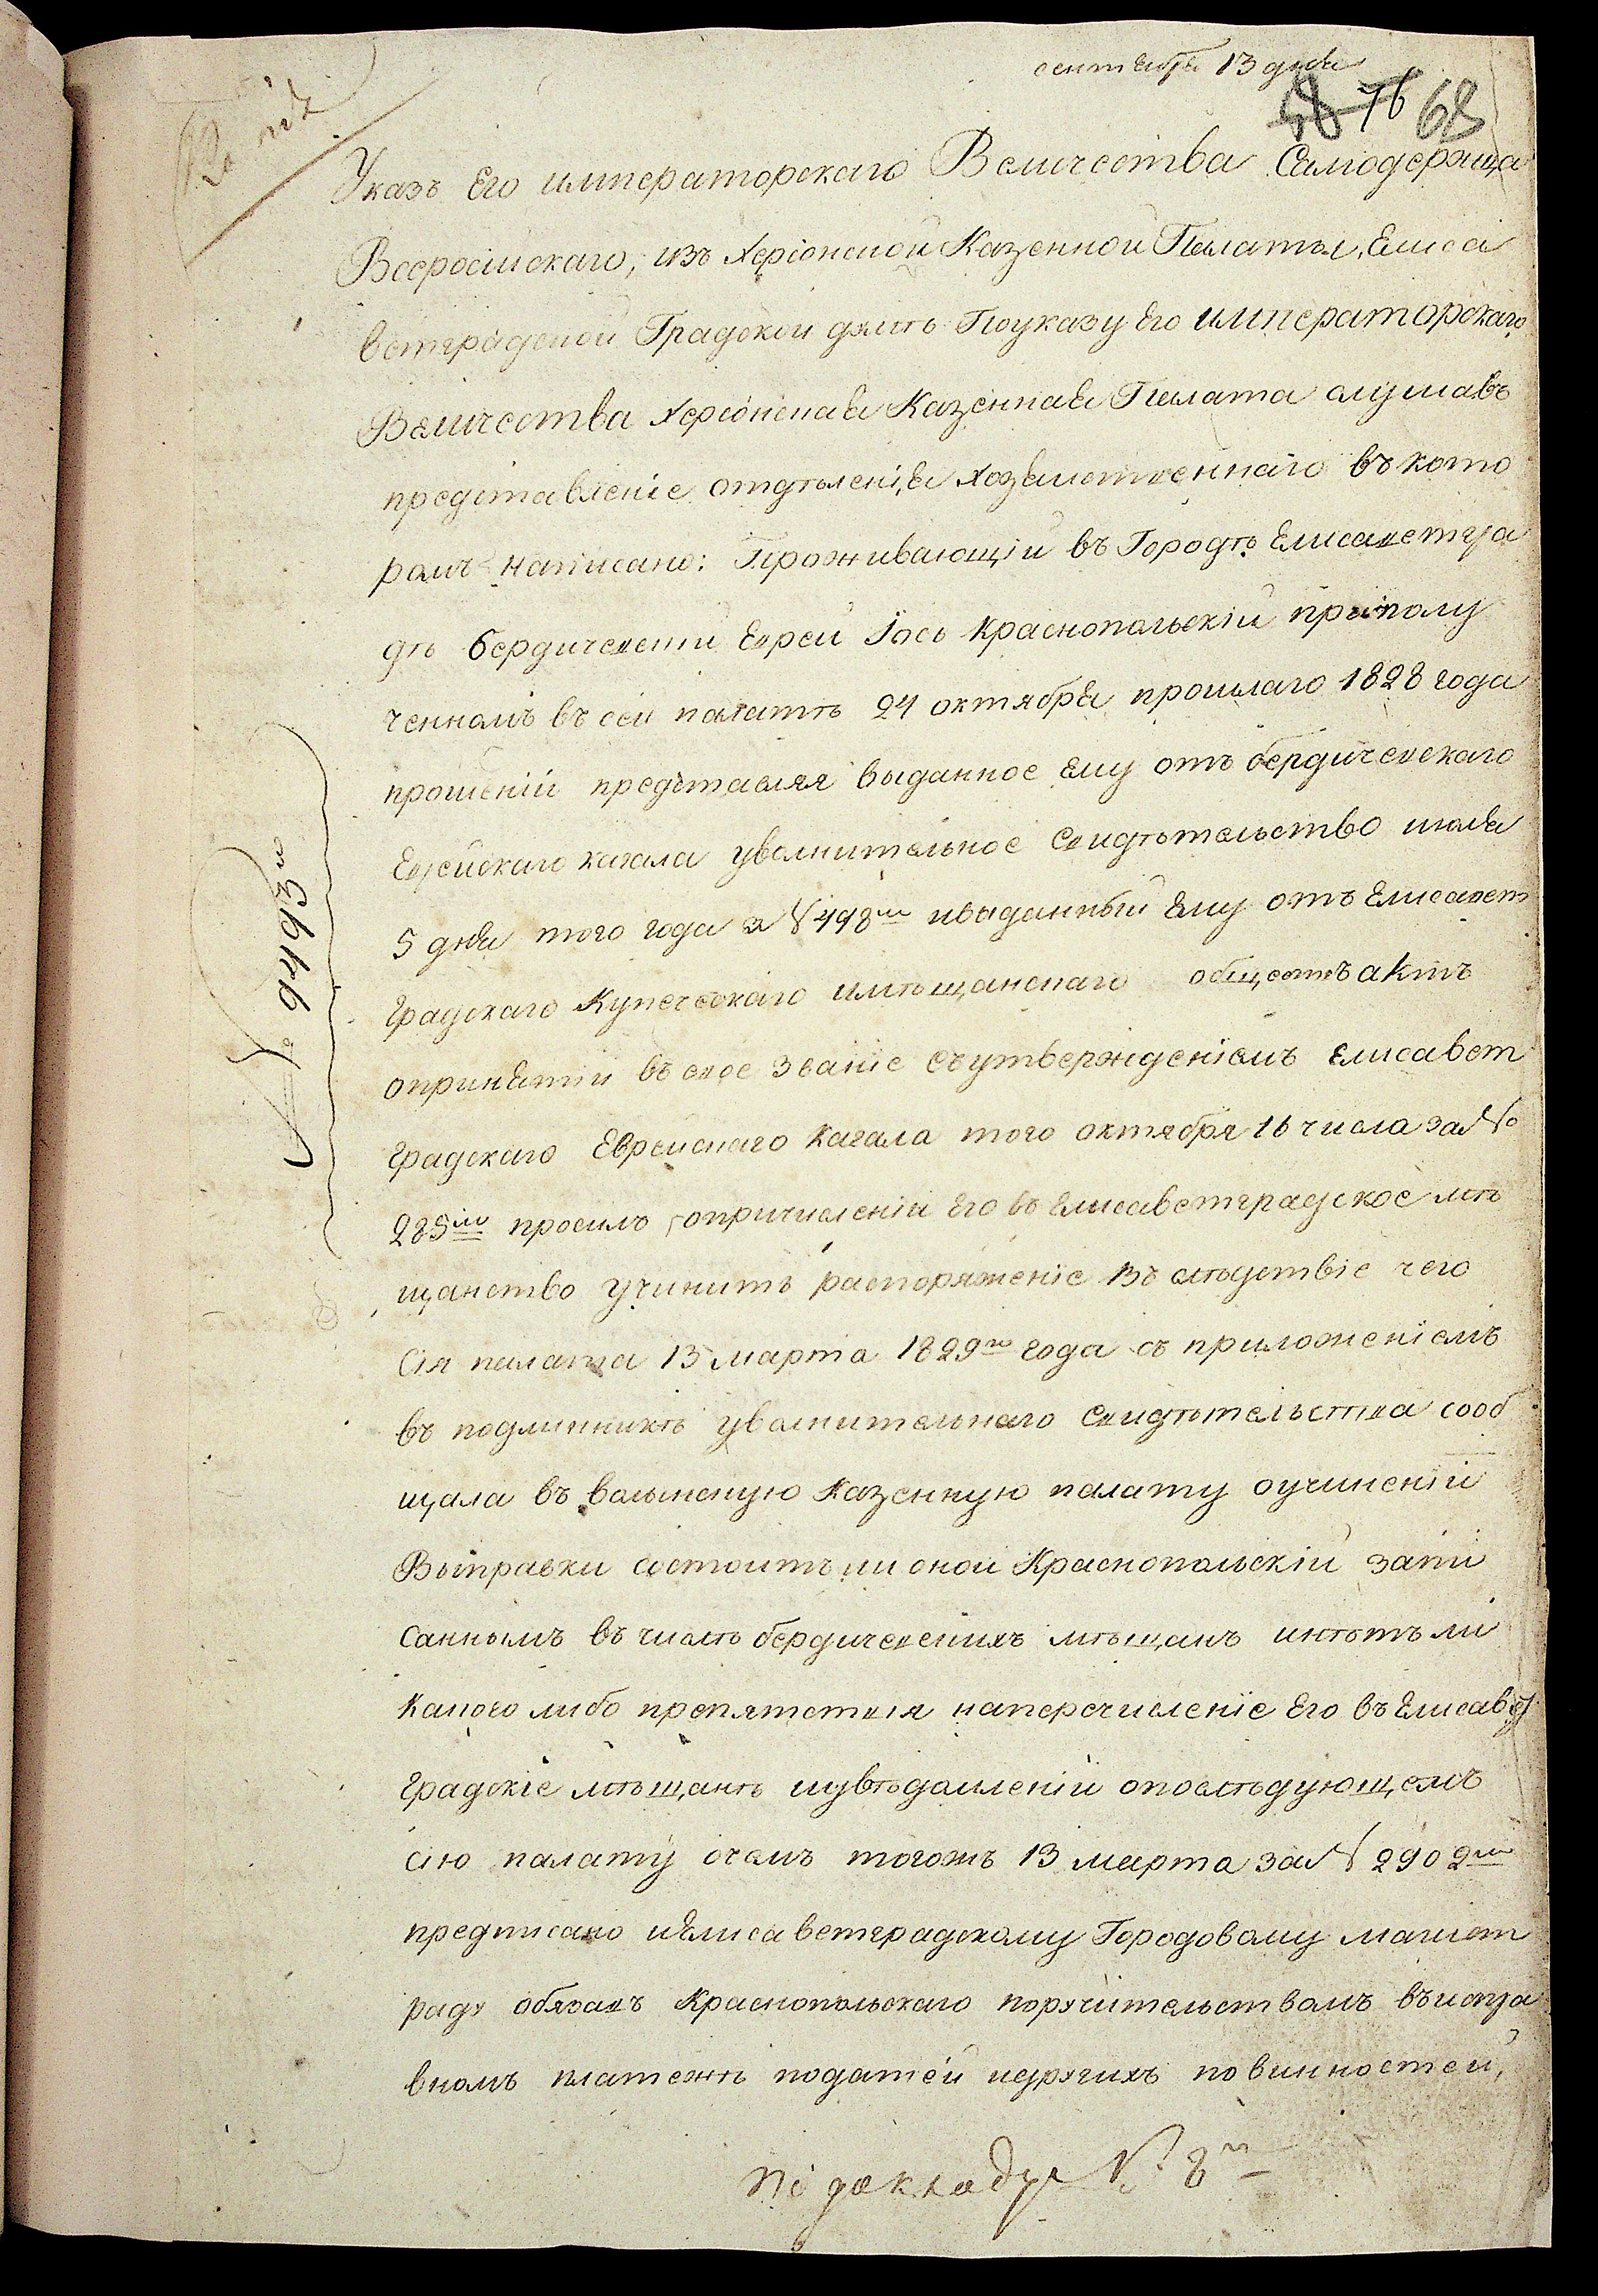 сентября 13 дня
48 76 68
Указъ Его императорскаго Величества Самодержца
Всеросийскаго, изъ Херсонской Казенной Палаты, Елиса
ветградской Градской думѣ Поуказу Его императорскаго
Величества Херсонская Казенная Палата слушавъ
представленіе отдѣленія Хозяйственнаго въ кото
ромъ написано: Проживающій въ Городѣ Елисаветгра
дѣ бердичевский Еврей Іось Краснопольскій приполу
ченномъ въ сей палатѣ 24 октября прошлаго 1828 года
прошеніи представляя выданное ему отъ бердичевскаго
Еврейскаго кагала уволнительное Свидѣтельство июля
5 дня того года за № 498м ивыданный Ему отъ Елисавет
градскаго Купеческаго имѣщанскаго обществъ актъ
опринятіи въ свое званіе съутвержденіемъ елисавет
градскаго Еврейскаго Кагала того октября 16 числа за №
285м просилъ опричисленіи Его въ Елисаветградское мѣ
щанство учинить распоряженіе Въ слѣдствіе чего
Сія палата 13 марта 1829го года съ приложеніемъ
въ подлинникѣ уволнительнаго Свидѣтельства сооб
щала въ волынскую Казенную палату оучиненіи
Выправки состоитъ ли оной Краснопольскій запи
саннымъ въ числѣ бердичевскихъ мѣщанъ инѣтъ ли
какого либо препятствія наперечисленіе Его въ Елисавет
градскіе мѣщанѣ иувѣдомленіи опослѣдующемъ
сію палату очемъ тогожъ 13 марта за № 2902м
предписано иЕлисаветградскому Городовому магист
рату обязавъ Краснопольскаго поручительствомъ въиспра
вномъ платежѣ податей идругихъ повинностей,
по докладу № 8м
№ 9449